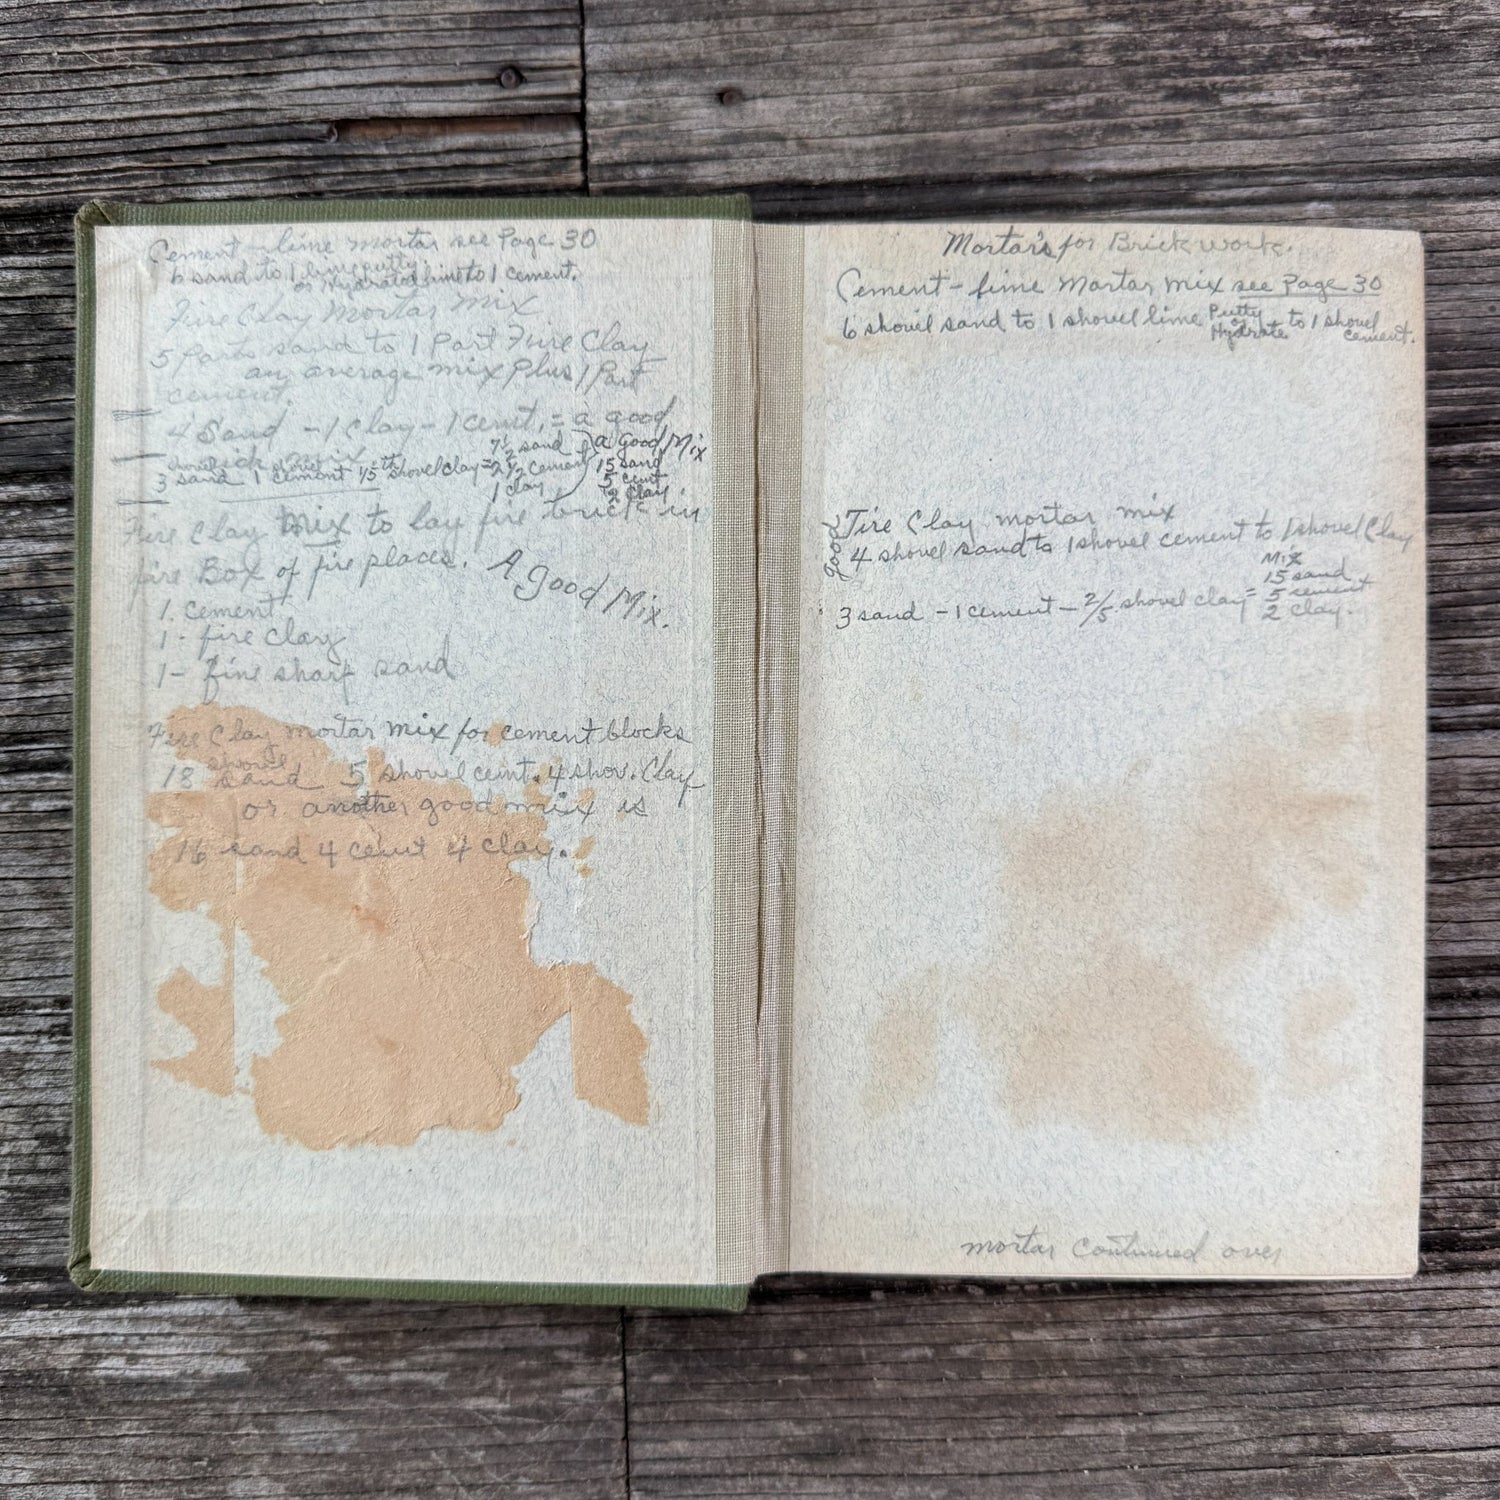 Cement - lime mortar see Page 30
6 sand to 1 lime putty
or Hydrated lime to 1 cement.
Fire Clay Mortar Mix
5 Parts sand to 1 Part Fire Clay
an average mix Plus 1 Part
cement.
4 Sand - 1 Clay - 1 cemt. = a good
mix
3 shovel sand 1 shovel cement 1/5 th shovel clay =
7 1/2 sand
2 1/2 cement
1 clay
a Good Mix
15 sand
5 cemt
2 Clay
Fire Clay Mix to lay fire brick in
fire Box of fire places. A good Mix.
1. cement
1 - fire clay
1 - fine sharp sand
Fire Clay mortar mix for cement blocks
18 shovel sand 5 shovel cemt. 4 shov. Clay
or another good mix is
16 sand 4 cemt 4 clay.
Mortar's for Brick work.
Cement - lime Mortar mix see Page 30
6 shovel sand to 1 shovel lime Putty or Hydrate to 1 shovel cement.
good
Fire Clay mortar mix
4 shovel sand to 1 shovel cement to 1 shovel Clay
3 sand - 1 cement - 2/5 shovel clay =
Mix
15 sand
5 cement
2 clay.
mortar continued over